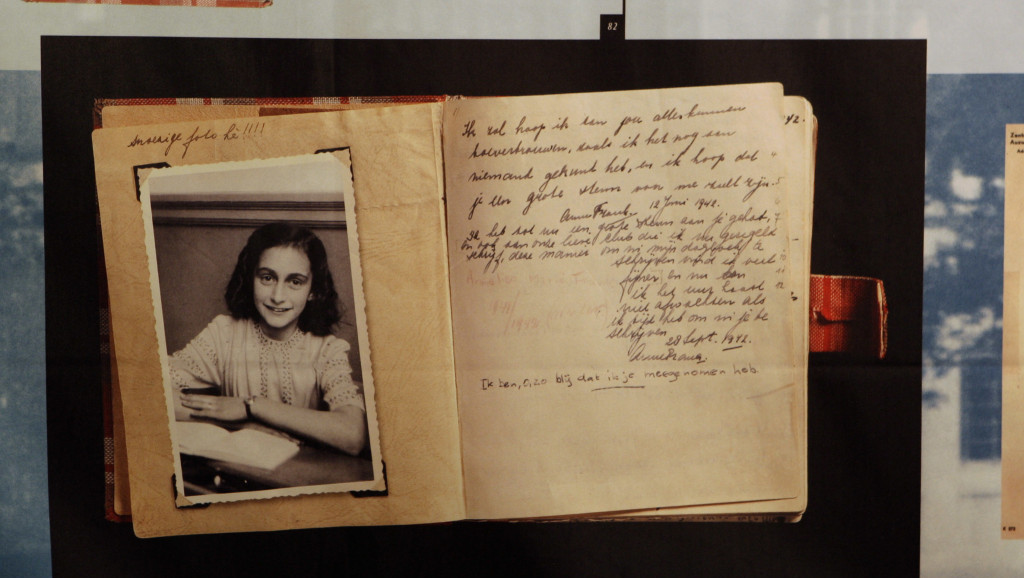 82
snoezige foto hè!!!!
Ik zal hoop ik aan jou alles kunnen
toevertrouwen, zoals ik het nog aan
niemand gekund heb, en ik hoop dat
je een grote steun voor me zult zijn.
Anne Frank. 12 Juni 1942.
Ik heb tot nu een grote steun aan je gehad,
en ook aan onze lieve club die ik nu geregeld
schrijf, deze manier om in mijn dagboek te
schrijven vind ik veel
fijner en nu kan
ik het uur haast
niet afwachten als
ik tijd heb om in je te
schrijven.
28 Sept. 1942.
Anne Frank.
Ik ben, o, zo blij dat ik je meegenomen heb.
42.